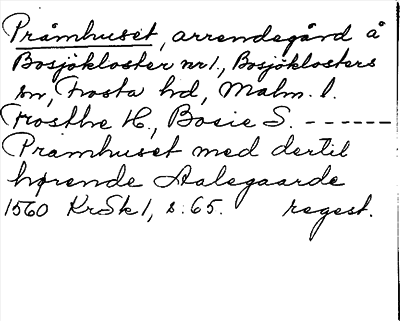 Pråmhuset, arrendegård å
Bosjökloster nr 1., Bosjöklosters
sn, Frosta hd, Malm. l.
Frosthe H., Bosie S. - - - - - -
Pramhuset med dertil
hørende Aalegaarde
1560 KrSk 1, s. 65. regest.